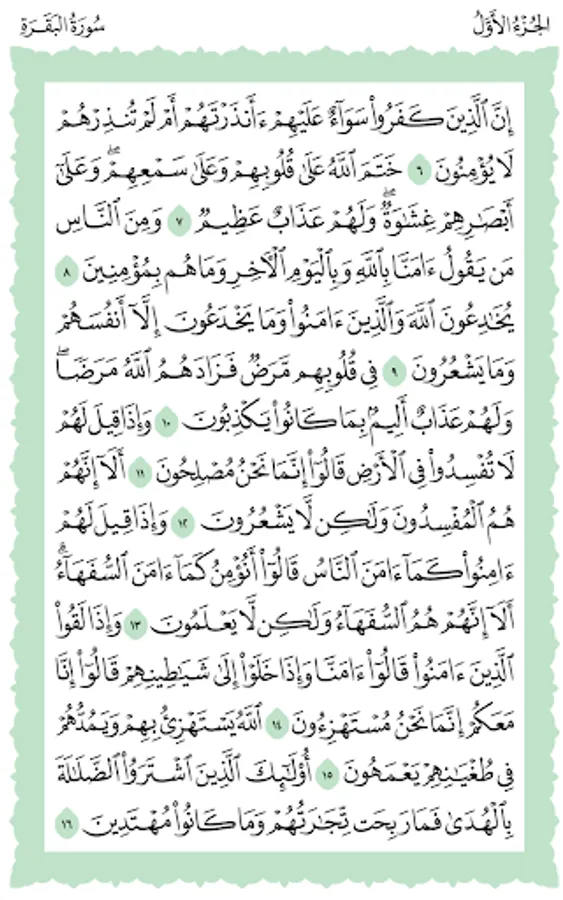 الجُزْءُ الأَوَّلُ
سُورَةُ البَقَرَةِ
إِنَّ ٱلَّذِينَ كَفَرُوا۟ سَوَآءٌ عَلَيْهِمْ ءَأَنذَرْتَهُمْ أَمْ لَمْ تُنذِرْهُمْ
لَا يُؤْمِنُونَ ٦ خَتَمَ ٱللَّهُ عَلَىٰ قُلُوبِهِمْ وَعَلَىٰ سَمْعِهِمْ ۖ وَعَلَىٰٓ
أَبْصَـٰرِهِمْ غِشَـٰوَةٌ ۖ وَلَهُمْ عَذَابٌ عَظِيمٌ ٧ وَمِنَ ٱلنَّاسِ
مَن يَقُولُ ءَامَنَّا بِٱللَّهِ وَبِٱلْيَوْمِ ٱلْـَٔاخِرِ وَمَا هُم بِمُؤْمِنِينَ ٨
يُخَـٰدِعُونَ ٱللَّهَ وَٱلَّذِينَ ءَامَنُوا۟ وَمَا يَخْدَعُونَ إِلَّآ أَنفُسَهُمْ
وَمَا يَشْعُرُونَ ٩ فِى قُلُوبِهِم مَّرَضٌ فَزَادَهُمُ ٱللَّهُ مَرَضًا ۖ
وَلَهُمْ عَذَابٌ أَلِيمٌۢ بِمَا كَانُوا۟ يَكْذِبُونَ ١٠ وَإِذَا قِيلَ لَهُمْ
لَا تُفْسِدُوا۟ فِى ٱلْأَرْضِ قَالُوٓا۟ إِنَّمَا نَحْنُ مُصْلِحُونَ ١١ أَلَآ إِنَّهُمْ
هُمُ ٱلْمُفْسِدُونَ وَلَـٰكِن لَّا يَشْعُرُونَ ١٢ وَإِذَا قِيلَ لَهُمْ
ءَامِنُوا۟ كَمَآ ءَامَنَ ٱلنَّاسُ قَالُوٓا۟ أَنُؤْمِنُ كَمَآ ءَامَنَ ٱلسُّفَهَآءُ ۗ
أَلَآ إِنَّهُمْ هُمُ ٱلسُّفَهَآءُ وَلَـٰكِن لَّا يَعْلَمُونَ ١٣ وَإِذَا لَقُوا۟
ٱلَّذِينَ ءَامَنُوا۟ قَالُوٓا۟ ءَامَنَّا وَإِذَا خَلَوْا۟ إِلَىٰ شَيَـٰطِينِهِمْ قَالُوٓا۟ إِنَّا
مَعَكُمْ إِنَّمَا نَحْنُ مُسْتَهْزِءُونَ ١٤ ٱللَّهُ يَسْتَهْزِئُ بِهِمْ وَيَمُدُّهُمْ
فِى طُغْيَـٰنِهِمْ يَعْمَهُونَ ١٥ أُو۟لَـٰٓئِكَ ٱلَّذِينَ ٱشْتَرَوُا۟ ٱلضَّلَـٰلَةَ
بِٱلْهُدَىٰ فَمَا رَبِحَت تِّجَـٰرَتُهُمْ وَمَا كَانُوا۟ مُهْتَدِينَ ١٦